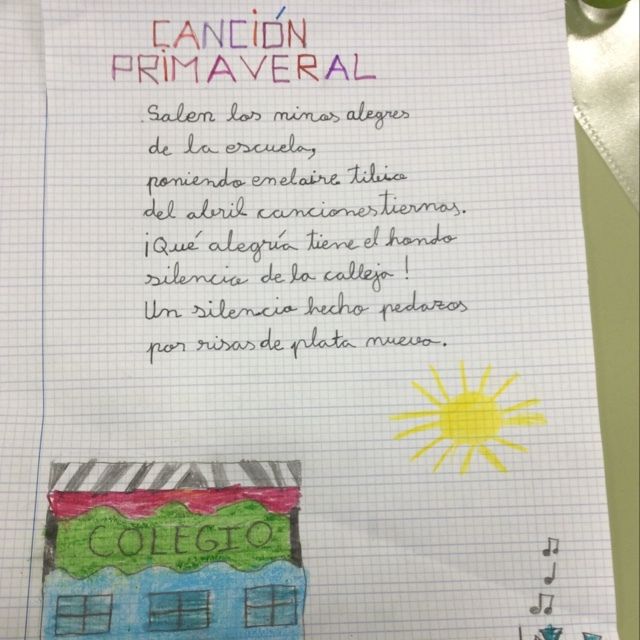 CANCIÓN
PRIMAVERAL
Salen los ninos alegres
de la escuela,
poniendo en el aire tibio
del abril canciones tiernas.
¡Qué alegría tiene el hondo
silencio de la calleja!
Un silencio hecho pedazos
por risas de plata nueva.
COLEGIO